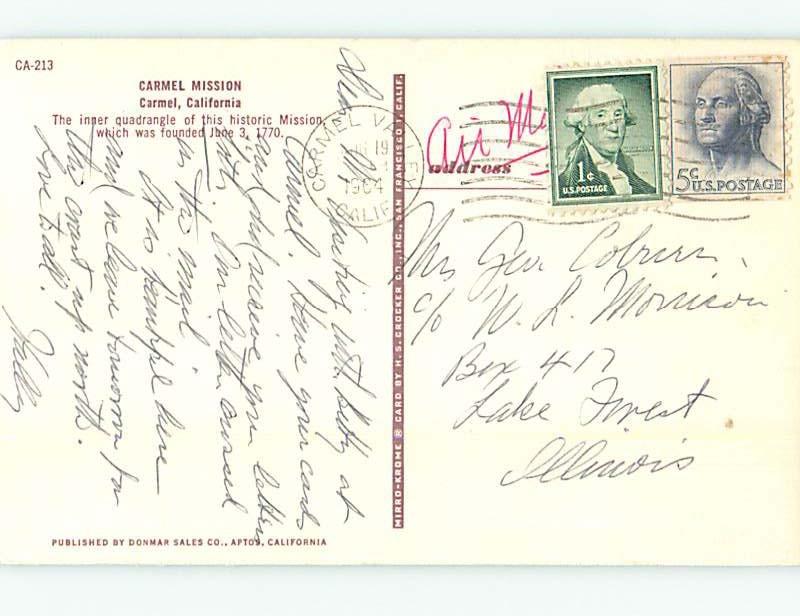 CA-213
CARMEL MISSION
Carmel, California
The inner quadrangle of this historic Mission,
which was founded June 3, 1770.
visiting with Betty at
Carmel. Have your cards
and did receive your letters
Our letter crossed
in the mail.
It is beautiful here
and we leave tomorrow for
the coast up north.
Love to all.
PUBLISHED BY DONMAR SALES CO., APTOS, CALIFORNIA
MIRRO-KROME ® CARD BY H. S. CROCKER CO., INC., SAN FRANCISCO 1, CALIF.
CARMEL VALLEY
19
1964
CALIF
Air
address
1¢
U.S. POSTAGE
5¢
U.S. POSTAGE
Mrs Geo. Coburn
c/o W. L. Morrison
Box 417
Lake Forest
Illinois